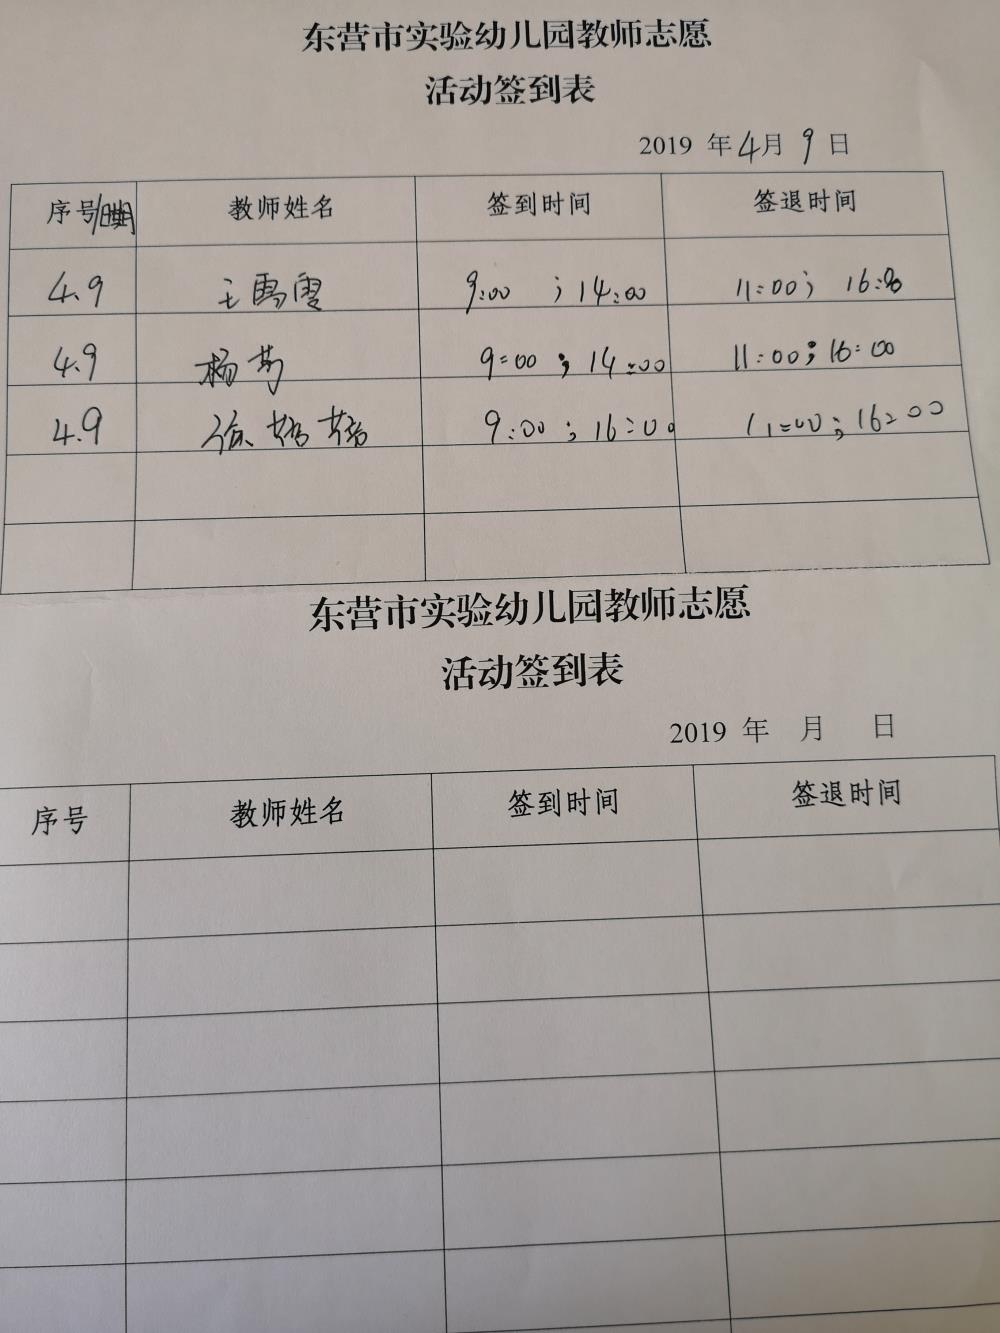 东营市实验幼儿园教师志愿
活动签到表
2019 年 4月 9 日
序号/日期 教师姓名 签到时间 签退时间
4.9 王 9:00 ; 14:00 11:00; 16:00
4.9 杨 9:00 ; 14:00 11:00;16:00
4.9 徐 9:00 ; 16:00 11:00;16:00
东营市实验幼儿园教师志愿
活动签到表
2019 年 月 日
序号 教师姓名 签到时间 签退时间